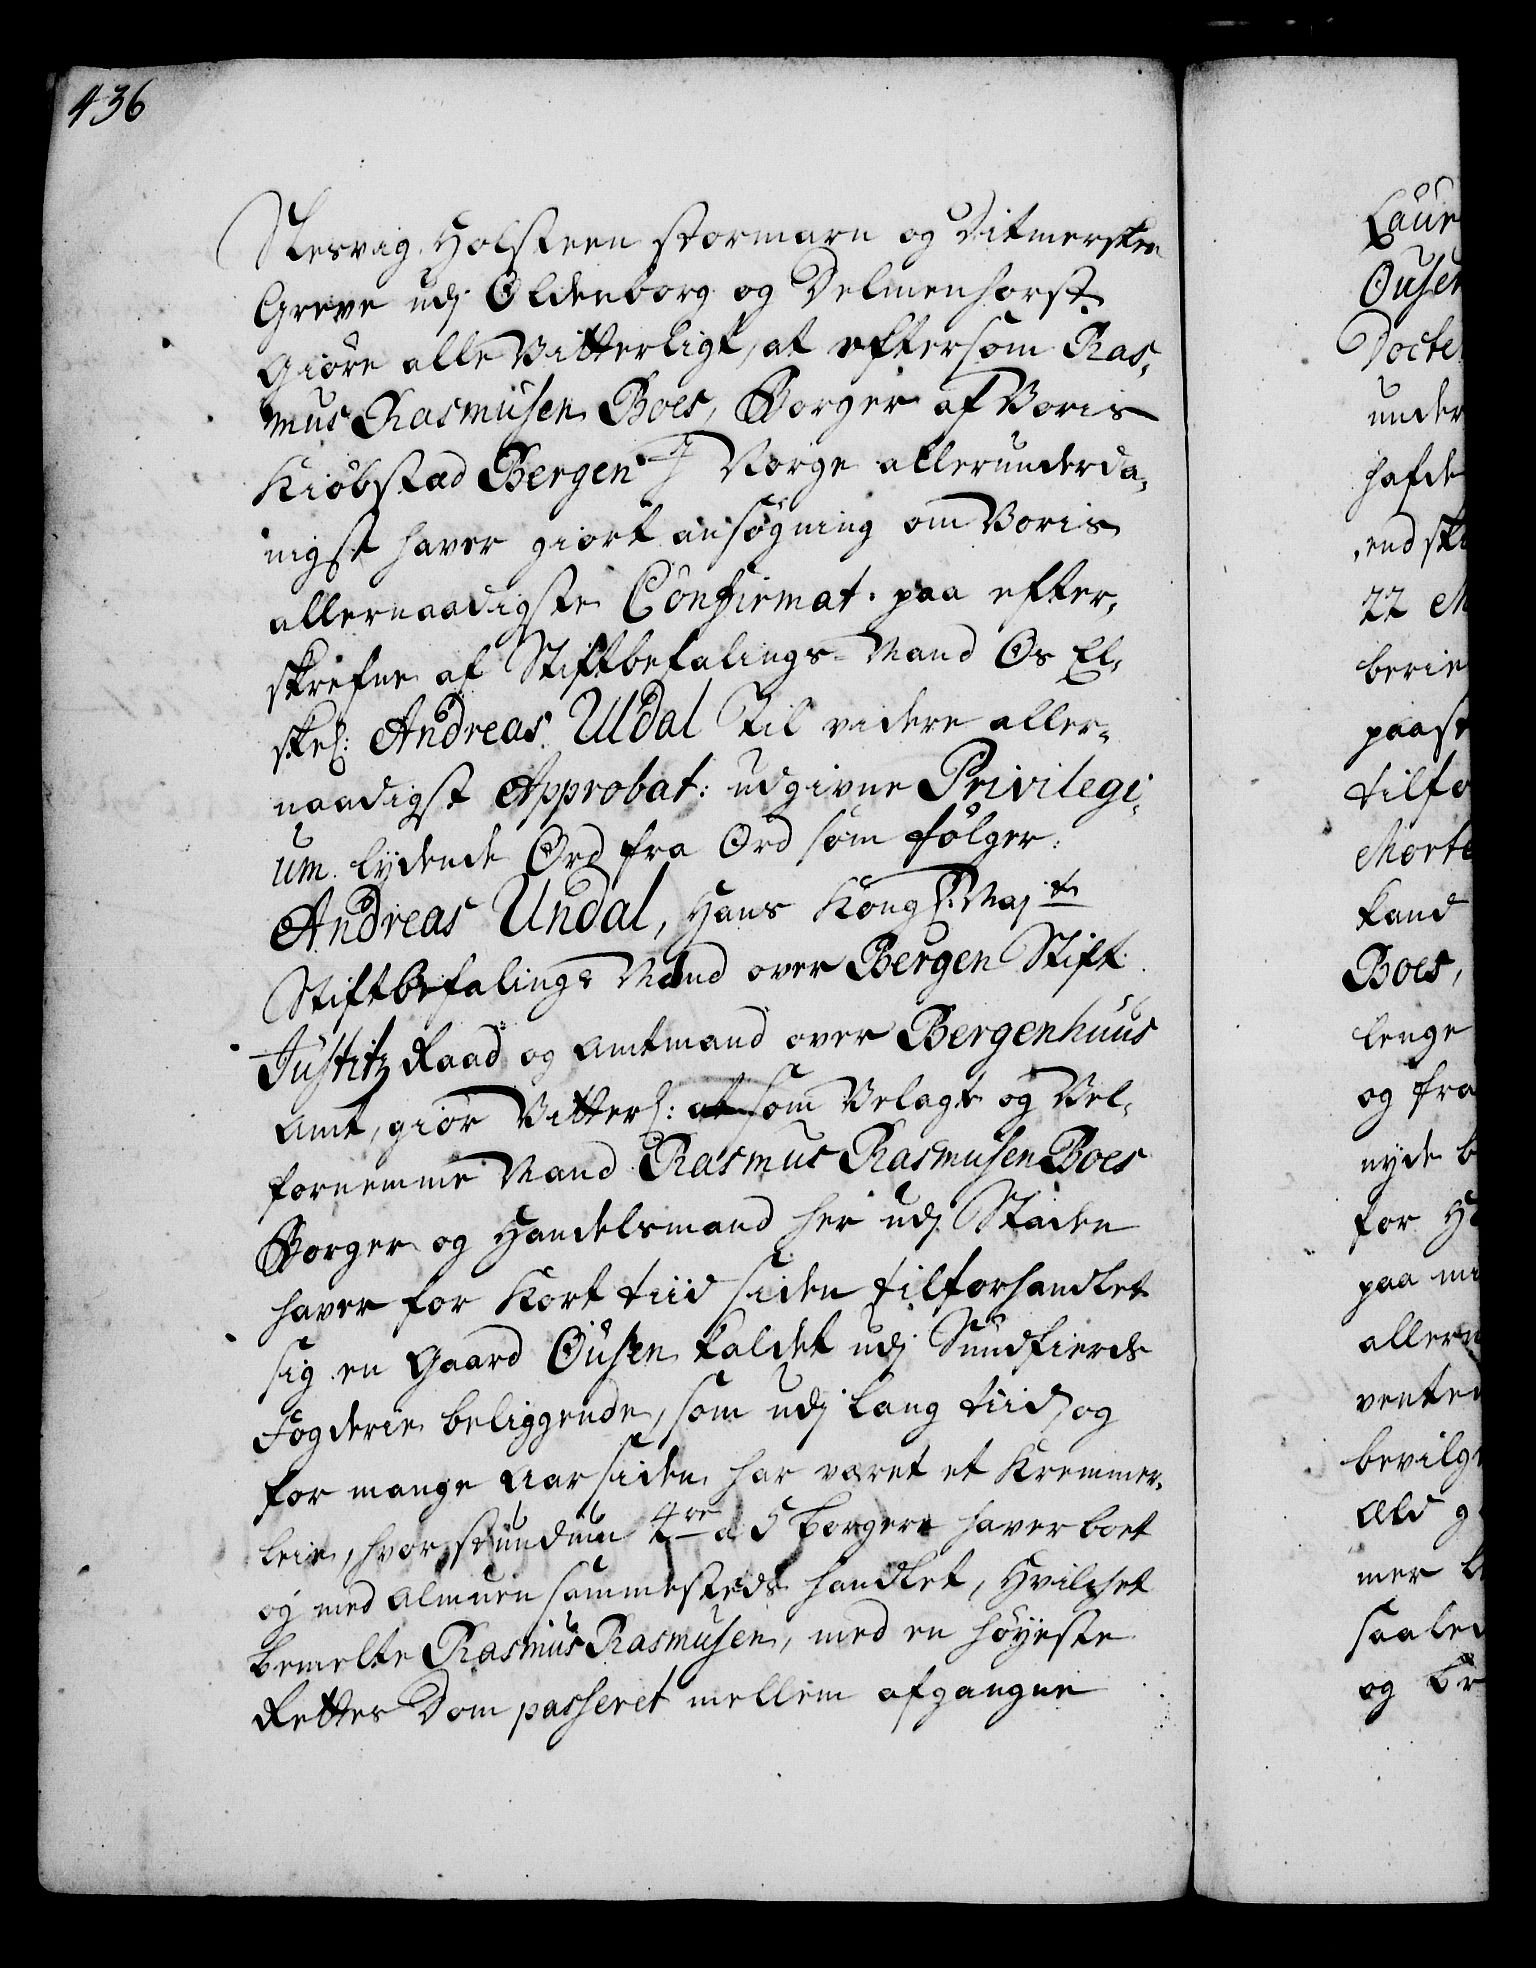 436
Slesvig, Holsteen Stormarn og Ditmersken
Greve udj Oldenborg og Delmenhorst
Giöre alle Vitterligt, at eftersom Ras,
mus Rasmusen Boes, Borger af Voris
Kiöbstæd Bergen J Norge allerunderda,
nigst haver giort ansögning om Voris
allernaadigste Confirmat: paa efter,
skrefne af Stiftbefalings-Mand Os El,
skel: Andreas Uldal til videre aller,
naadigst Approbat: udgivne Privilegi,
um lydende Ord fra Ord som fölger:
Andreas Undal, Hans Kongl: Majts
Stiftbefalings Mand over Bergen Stift
Justitz Raad og Amtmand over Bergenhuus
Amt, giör Vitterl: at som Velagt og Vel,
fornemme Mand Rasmus Rasmusen Boes
Borger og Handelsmand her udj Staden
haver for Kort tiid siden tilforhandlet
sig en Gaard Öusen kaldet udj Sundfiords
Fogderie beliggende, som udj lang tiid og
for mange Aar siden har været et Kremmer,
leie, hvor stundum 4re a 5 borgere haver boet
og med Almuen sammesteds handlet, Hvilchet
bemelte Rasmus Rasmusen, med en höyeste
Rettes Dom passeret mellem afgangne
Laur
Ousen
Docte
under
hafde
end sk
22 M
berie
paast
tilfo
Morte
kand
Boes,
lenge
og fra
nyde b
for H
paa mi
allern
vente
bevilg
Ald g
mer
saaled
og br